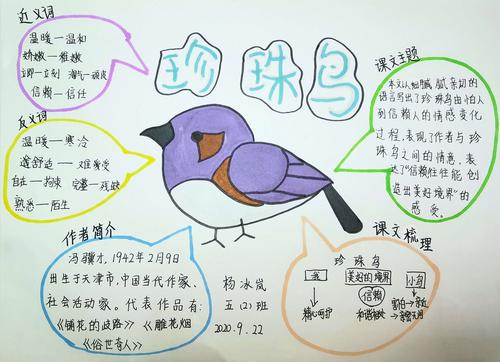 近义词
温暖—温和
娇嫩—稚嫩
立即—立刻 淘气—顽皮
信赖—信任
珍珠鸟
课文主题
本文以细腻、亲切的
语言写出了珍珠鸟由怕人
到信赖人的情感变化
过程，表现了作者与珍
珠鸟之间的情意，表
达了“信赖往往能创
造出美好境界”的
感受。
反义词
温暖—寒冷
舒适—难受
自在—拘束 完整—残缺
熟悉—陌生
作者简介
冯骥才，1942年2月9日
出生于天津市，中国当代作家、
社会活动家。代表作品有：
《铺花的歧路》《雕花烟
《俗世奇人》
杨冰岚
五(2)班
2020.9.22
课文梳理
珍珠鸟
我 美好的境界 小鸟
信赖
精心呵护